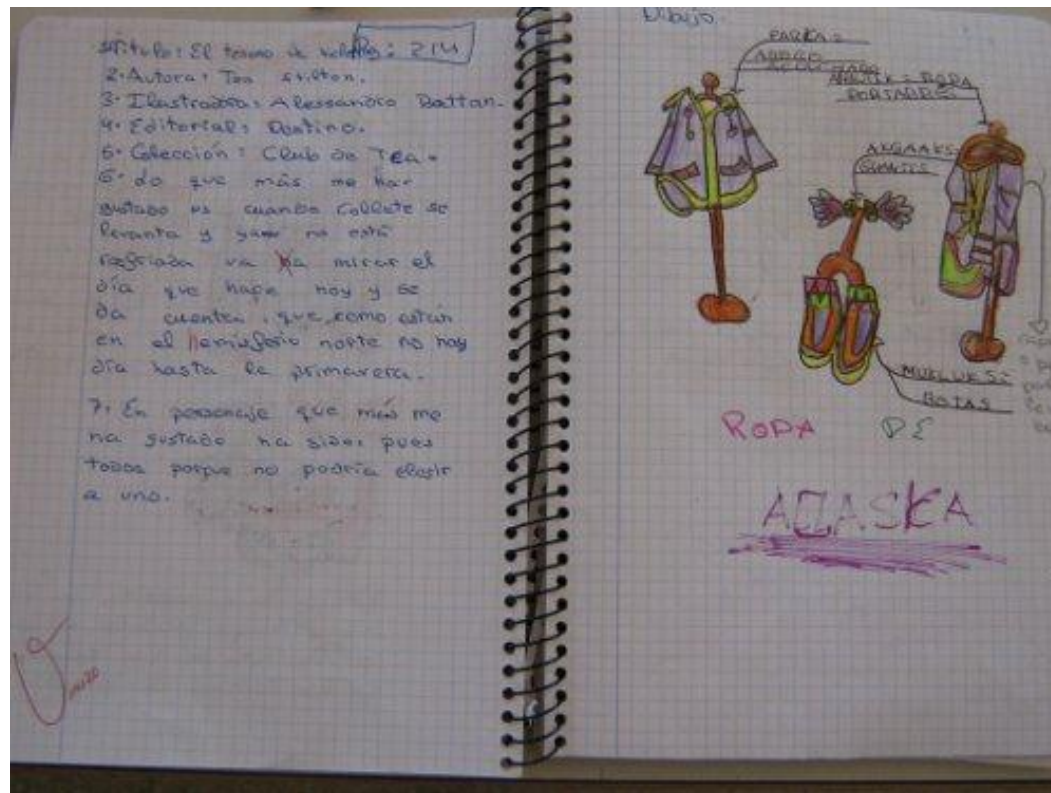 Título: El tesoro de Pág: 214
2. Autora: Tea Stilton.
3. Ilustradora: Alessandro Battan.
4. Editorial: Destino.
5. Colección: Club de Tea.
6. Lo que más me ha
gustado es cuando Collete se
levanta y ya no está
resfriada va a mirar el
día que hape hoy y se
da cuenta, que como están
en el hemisferio norte no hay
día hasta la primavera.
7. En personaje que más me
ha gustado ha sido: pues
todos porque no podría elegir
a uno.
Dibujo.
PARKA:
ABRIGO
ROPA
ANGAAKS:
GUANTES
MUKLUKS:
BOTAS
ROPA DE
ALASKA